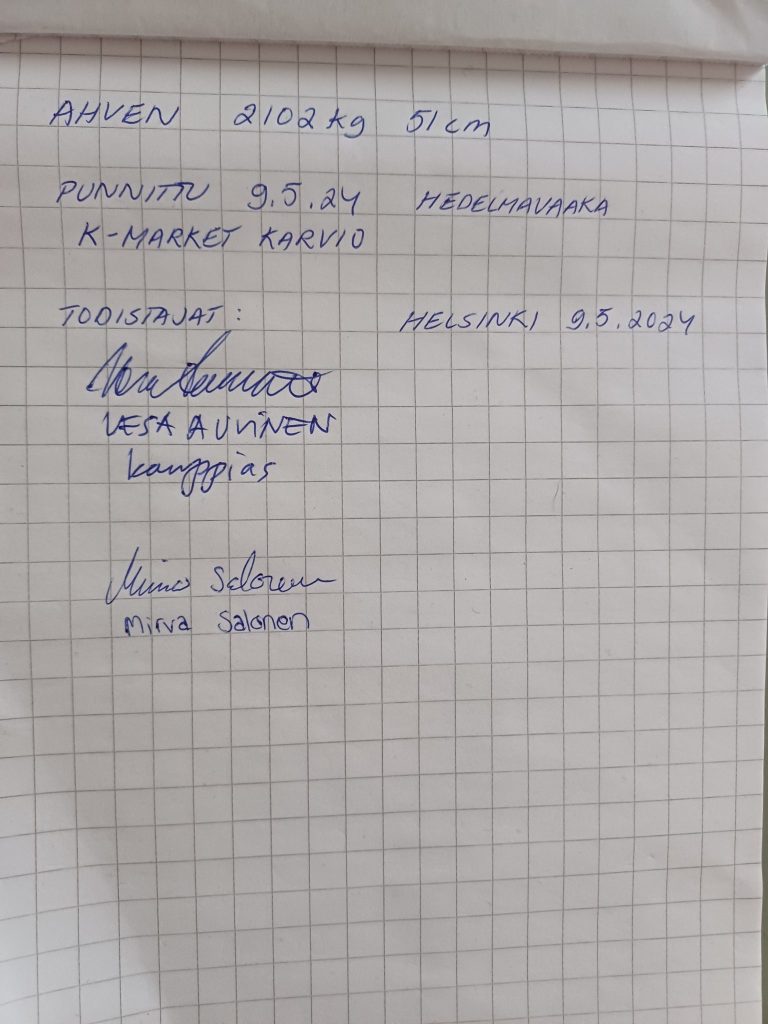 AHVEN 2102 kg 51 cm
PUNNITTU 9.5.24 HEDELMAVAAKA
K-MARKET KARVIO
TODISTAJAT: HELSINKI 9.5.2024
VESA AUVINEN
kauppias
Mirva Salonen
mirva Salonen